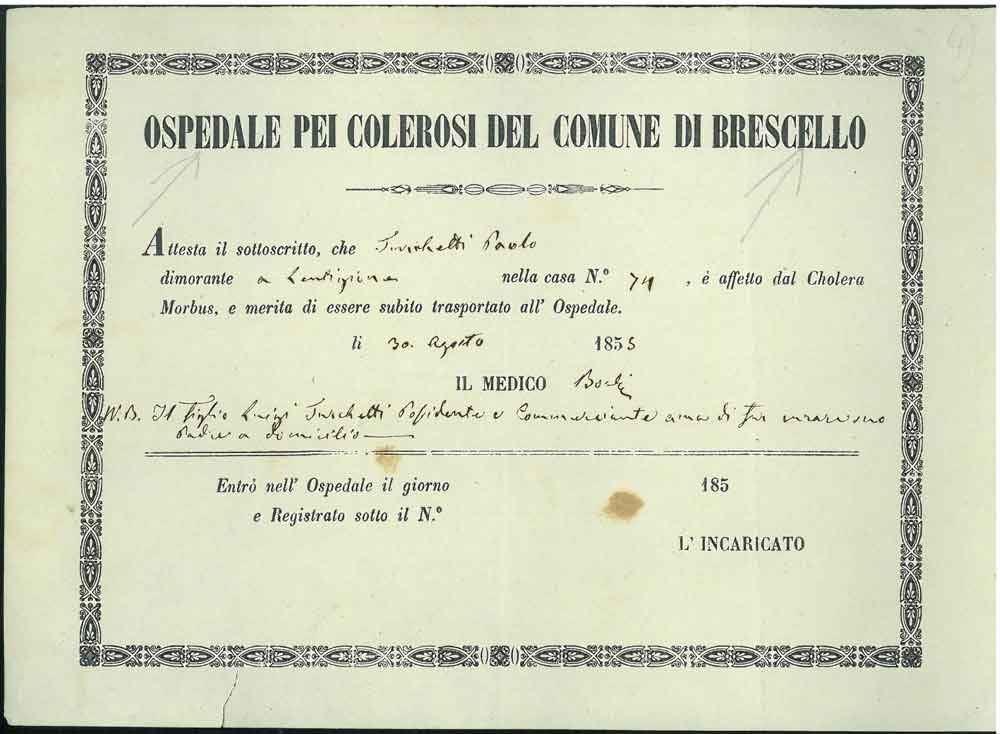 4)
OSPEDALE PEI COLEROSI DEL COMUNE DI BRESCELLO
Attesta il sottoscritto, che Turchetti Paolo
dimorante a Lentigione nella casa N.º 74 , è affetto dal Cholera
Morbus, e merita di essere subito trasportato all' Ospedale.
li 30. Agosto 1855
IL MEDICO
N.B. Il figlio Luigi Turchetti Possidente e Commerciante ama di far curare suo
Padre a domicilio
Entrò nell' Ospedale il giorno 185
e Registrato sotto il N.º
L' INCARICATO